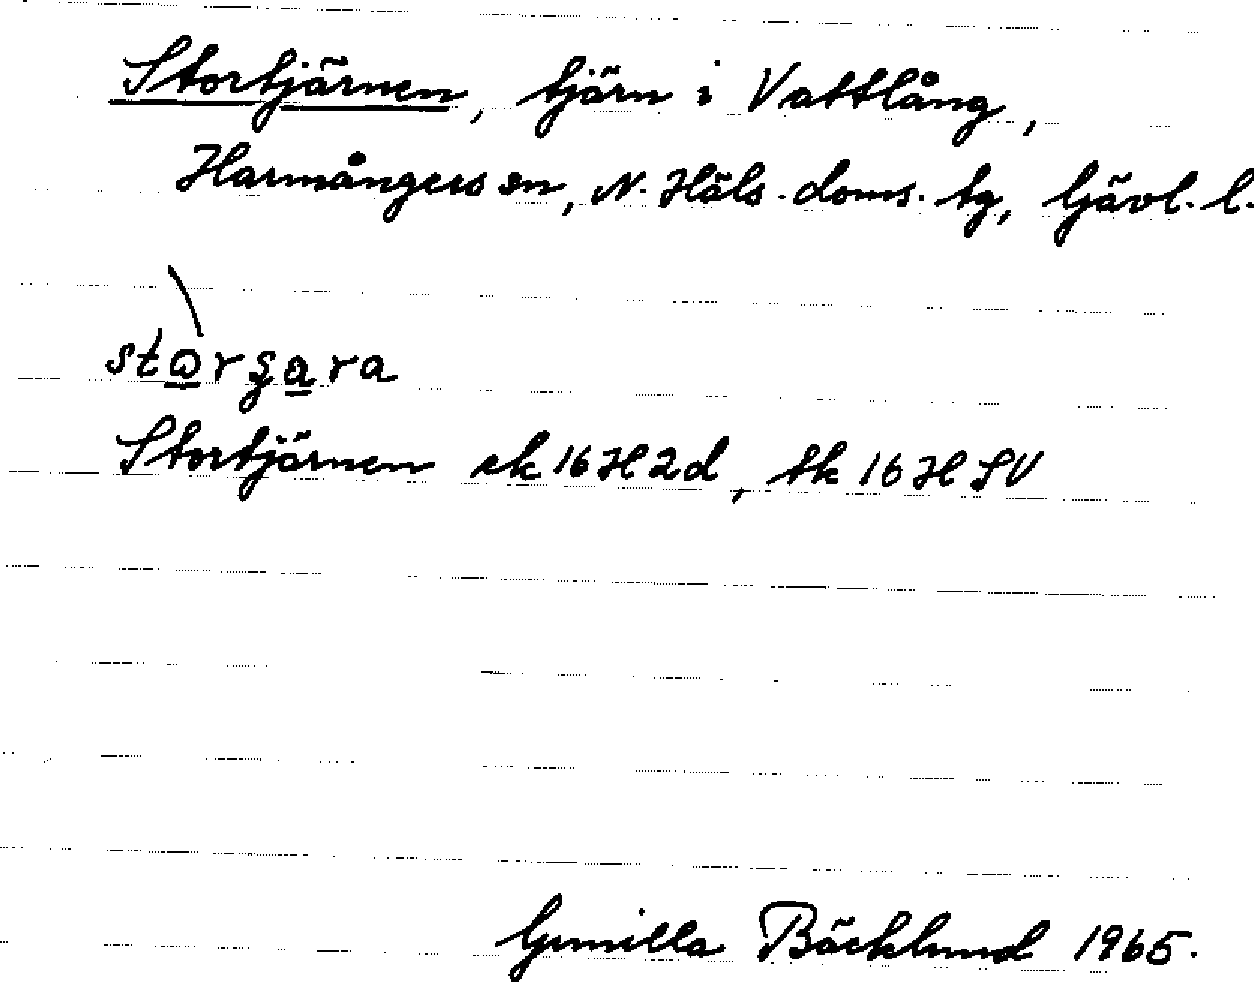 Stortjärnen, tjärn i Vattlång,
Harmångers sn, N. Häls. doms. tg, Gävl. l.
stωrʂara
Stortjärnen ek 16H2d, tk 16H SV
Gunilla Bäcklund 1965.